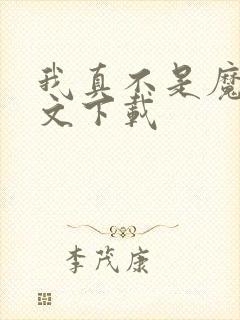 我真不是魔
文下载
李茂康